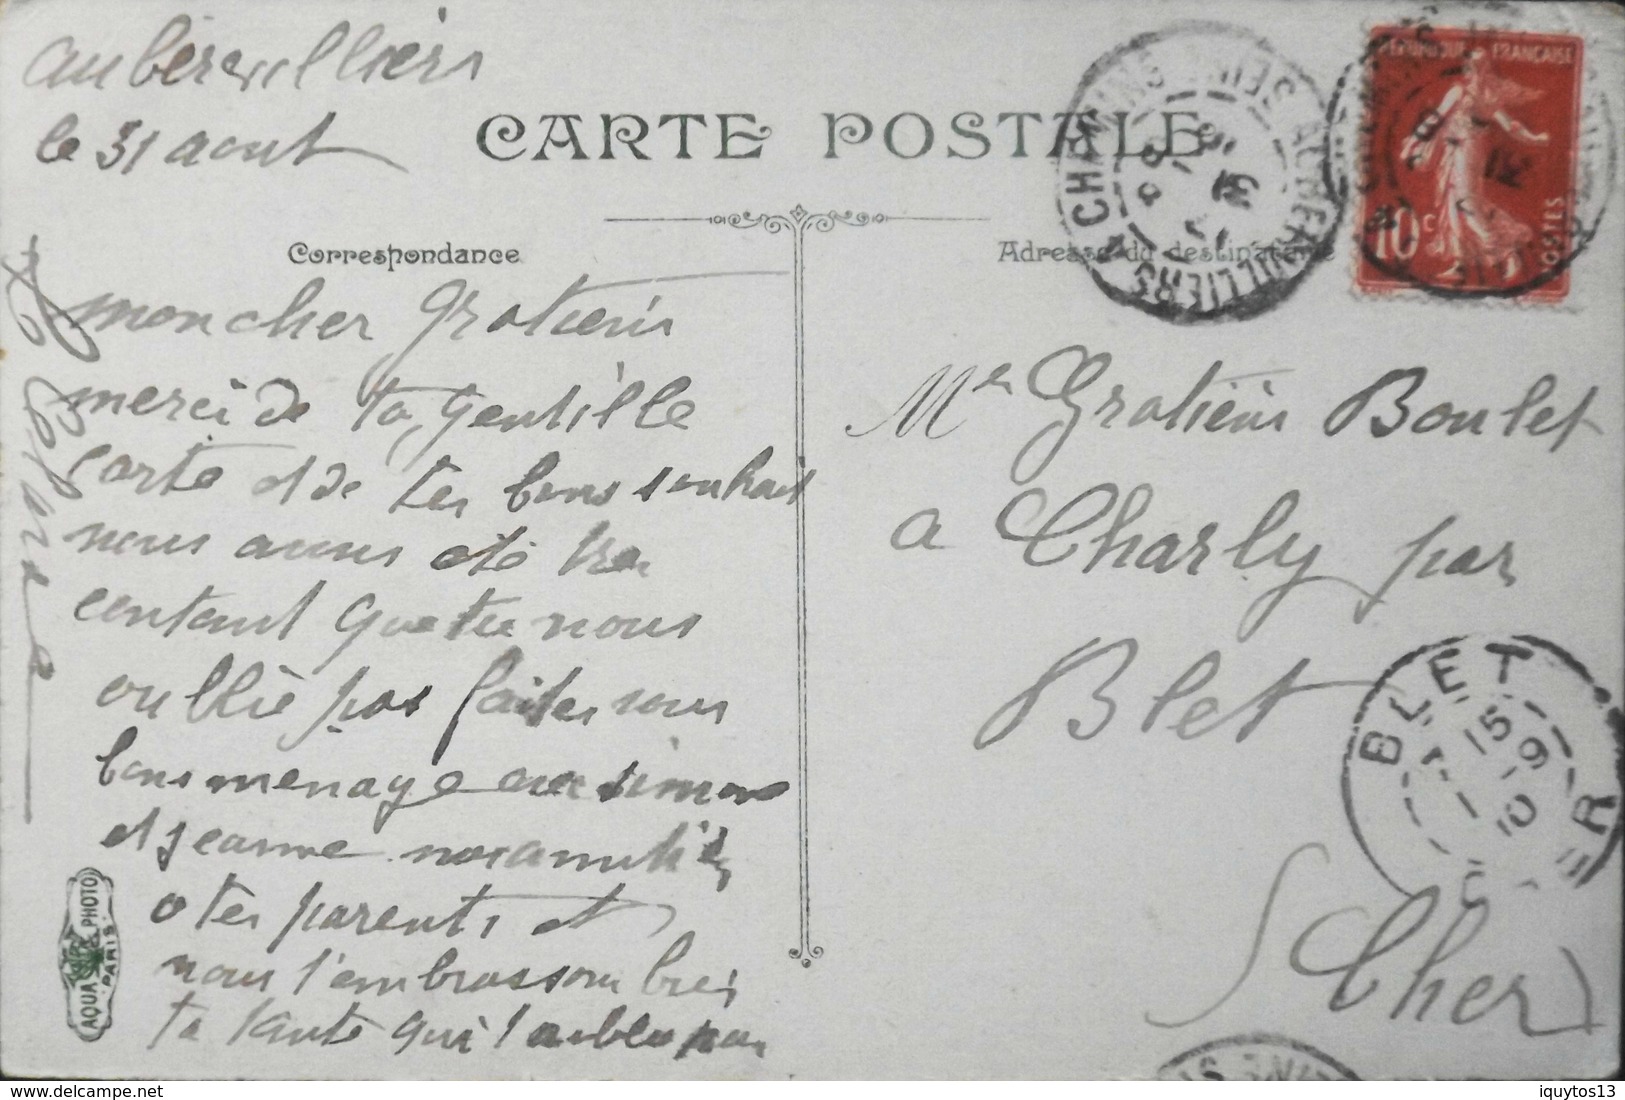 auberwilliers
le 31 aout
CARTE POSTALE
Correspondance
Adresse du destinataire
mon cher Gratiens
merci de ta gentille
carte et de tes bons souhait
nous avons eté tres
contant que tu nous
oublie pas faites vous
bons menage avec simone
et jeanne nos amitiés
a tes parents et
nous t'embrassons bien
ta tante qui t'oublie pas
AQUA PHOTO
PARIS
REPUBLIQUE FRANÇAISE
10c POSTES
AUBERVILLIERS 4 CHEMINS SEINE
Mr Gratiens Boulet
a Charly par
Blet
(Cher)
BLET CHER
15
1 - 9
10
delcampe.net
iquytos13